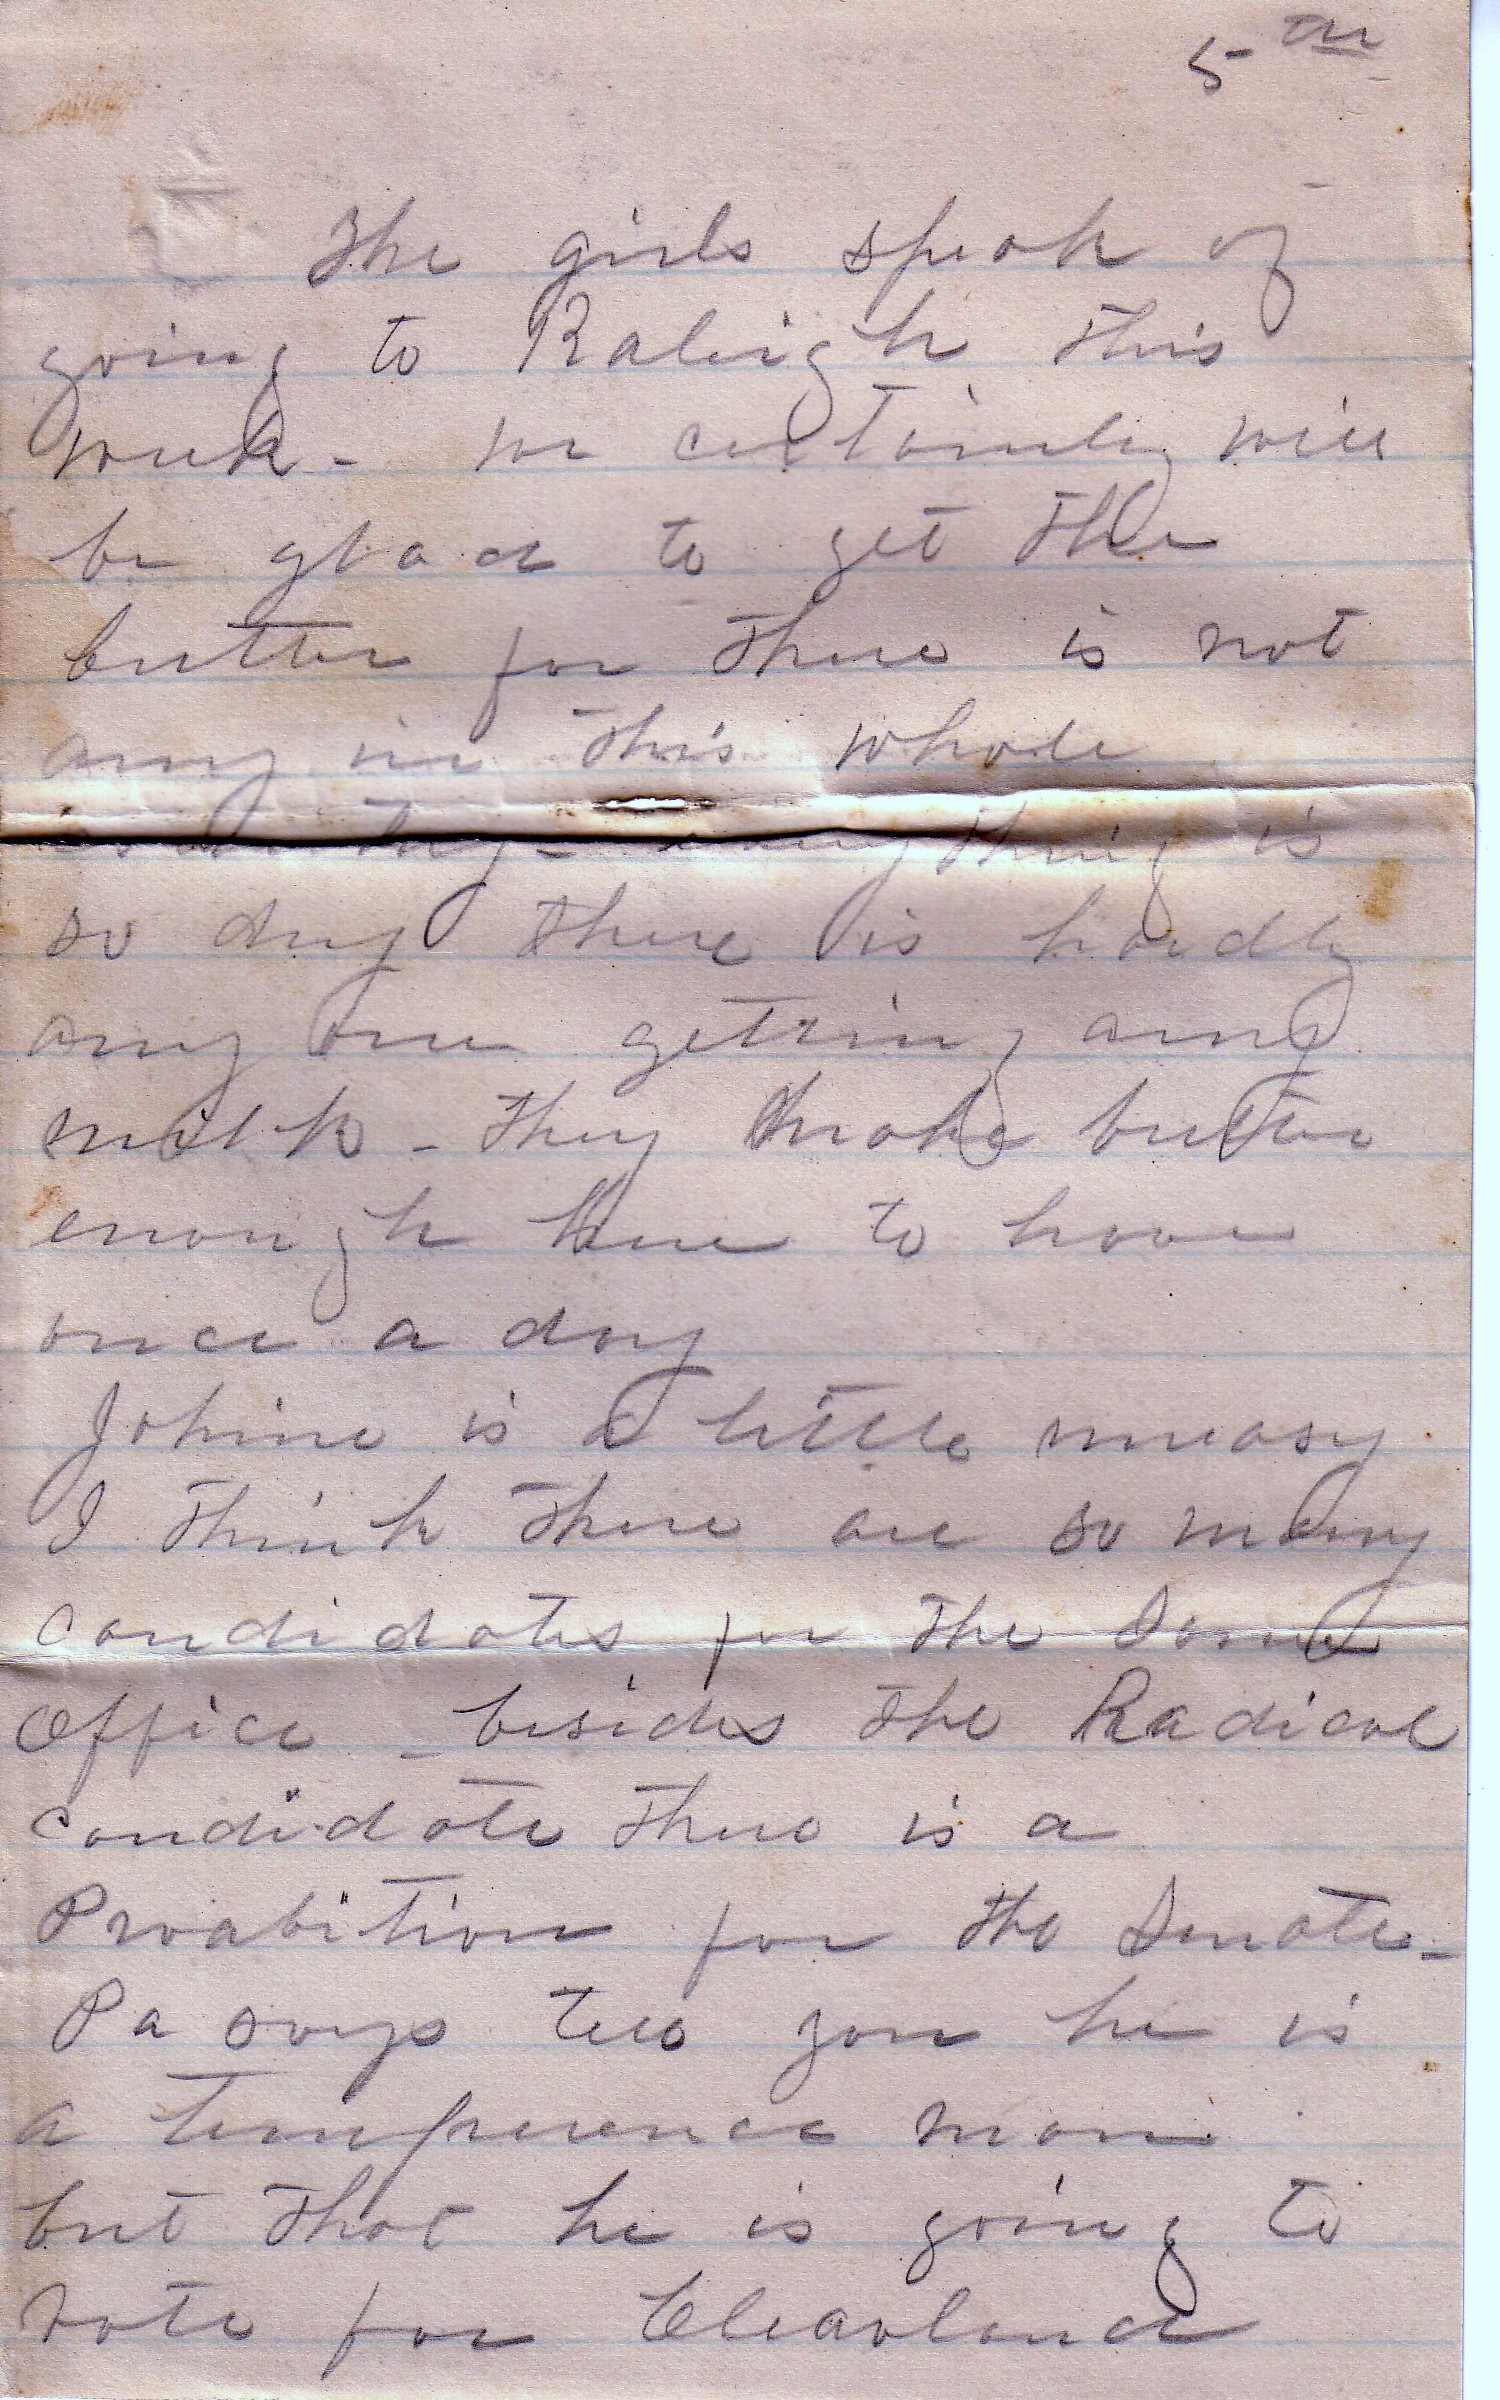 5th
The girls speak of
going to Raleigh this
week - we certainly will
be glad to get the
butter for there is not
any in this whole
country - everything is
so dry there is hardly
any one getting any
milk - they make butter
enough here to have
once a day
Johnie is a little uneasy
I think there are so many
candidates for the same
office - besides the Radical
candidate there is a
Proabition for the Senate -
Pa says tell you he is
a temperence man
but that he is going to
vote for Cleaveland